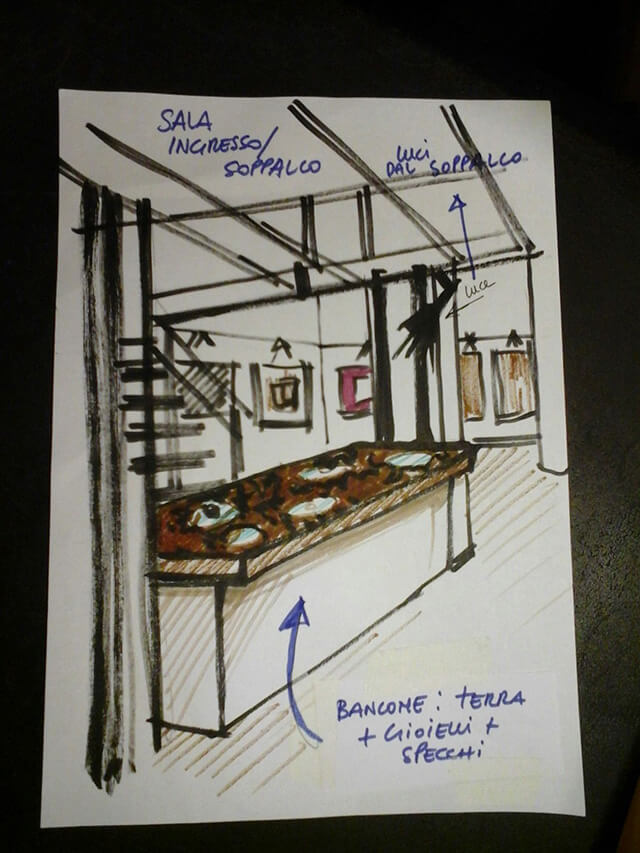 SALA
INGRESSO/
SOPPALCO
LUCI
DAL SOPPALCO
luce
BANCONE: TERRA
+ GIOIELLI +
SPECCHI